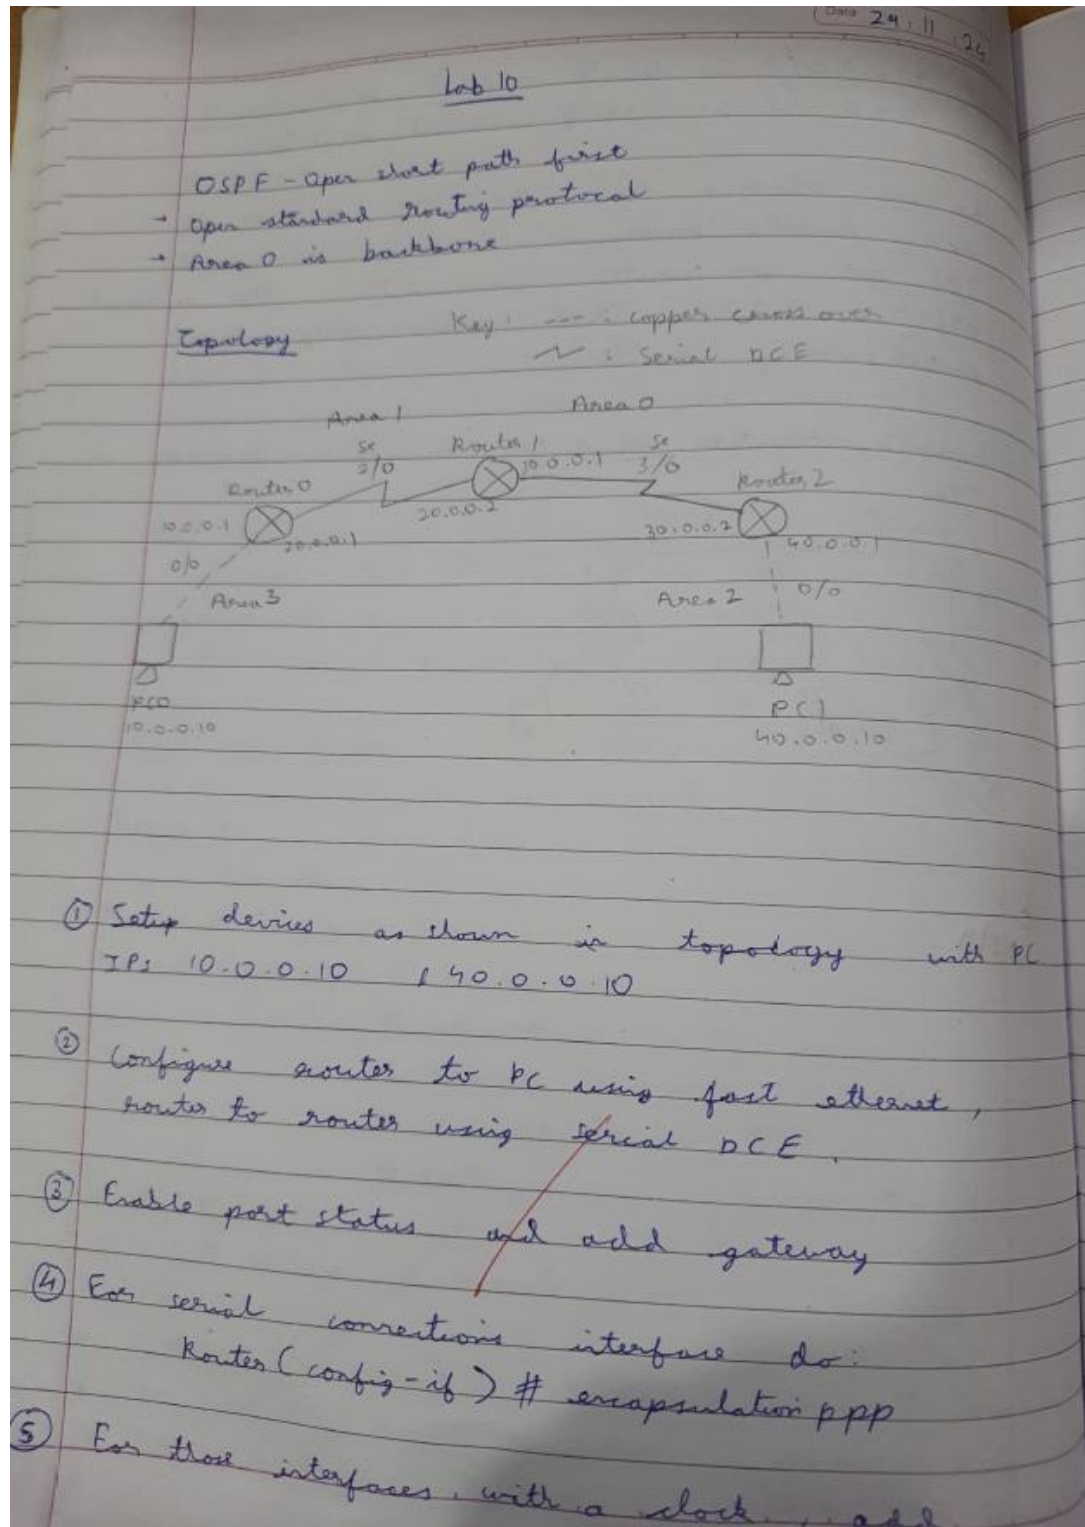 Date 24.11.24
Lab 10
OSPF - Open short path first
→ Open standard routing protocal
→ Area 0 is backbone
Topology
Key: --- : copper cross over
: Serial DCE
Area 1 Area 0
Se 2/0 Router 1 Se 3/0
Router 0 Router 2
10.0.0.1 20.0.0.1 20.0.0.2 30.0.0.2 40.0.0.1
0/0 0/0
Area 3 Area 2
PC0 PC1
10.0.0.10 40.0.0.10
① Setup devices as shown in topology with PC
IPs 10.0.0.10 & 40.0.0.10
② Configure router to PC using fast ethernet,
router to router using serial DCE.
③ Enable port status and add gateway
④ For serial connections interface do:
Router (config-if) # encapsulation ppp
⑤ For those interfaces, with a clock, add